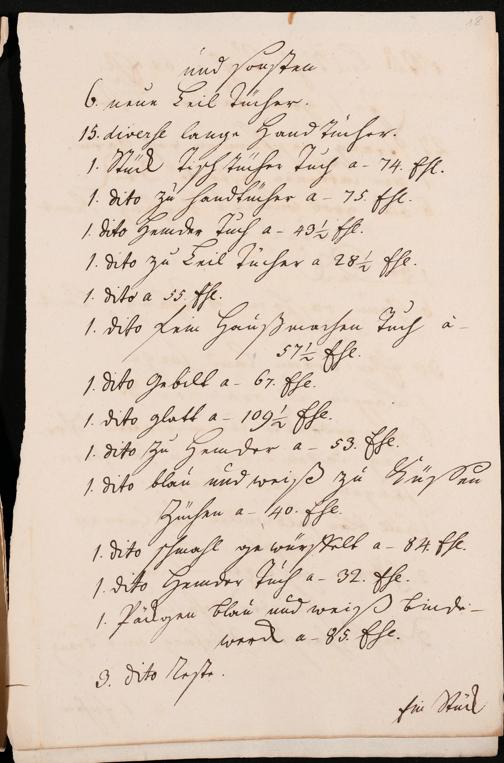 18
und sonsten
6. neue Leil Tücher.
15. diverse lange Hand tücher.
1. Stück Tisch tücher Tuch a – 74. Ehl.
1. dito zu handtücher a – 75. Ehl.
1. dito Hemder Tuch a – 43½ Ehl.
1. dito zu Leil Tücher a 28½ Ehl.
1. dito a 55. Ehl.
1. dito fein Haußmachen Tuch à –
57½ Ehl.
1. dito Gebilt a – 67. Ehl.
1. dito glatt a – 109½ Ehl.
1. dito zu Hemder a – 53. Ehl.
1. dito blau und weiß zu Küssen
Züchen a – 40. Ehl.
1. dito schmahl gewürffelt a – 84. Ehl.
1. dito Hemder Tuch a – 32. Ehl.
1. Päckgen blau und weiß binde-
werck a – 85. Ehl.
3. dito Reste.
Ein Stück